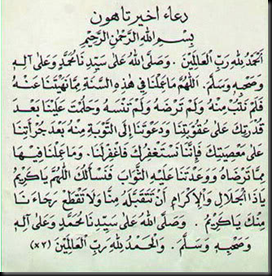 دعاء اخير تاهون
بِسْمِ اللهِ الرَّحْمٰنِ الرَّحِيْمِ
اَلْحَمْدُ لِلّٰهِ رَبِّ الْعَالَمِيْنَ . وَصَلَّى اللهُ عَلَى سَيِّدِنَا مُحَمَّدٍ وَعَلَى آلِهِ
وَصَحْبِهِ وَسَلَّمَ . اَللّٰهُمَّ مَا عَمِلْنَا فِي هٰذِهِ السَّنَةِ مِمَّا نَهَيْتَنَا عَنْهُ
فَلَمْ نَتُبْ مِنْهُ وَلَمْ تَرْضَهُ وَلَمْ تَنْسَهُ وَحَلُمْتَ عَلَيْنَا بَعْدَ
قُدْرَتِكَ عَلَى عُقُوْبَتِنَا وَدَعَوْتَنَا اِلَى التَّوْبَةِ مِنْهُ بَعْدَ جُرْأَتِنَا
عَلَى مَعْصِيَتِكَ فَاِنَّا نَسْتَغْفِرُكَ فَاغْفِرْلَنَا . وَمَا عَمِلْنَا فِيْهَا
مِمَّا تَرْضَاهُ وَوَعَدْتَنَا عَلَيْهِ الثَّوَابَ فَنَسْأَلُكَ اللّٰهُمَّ يَا كَرِيْمُ
يَا ذَا الْجَلَالِ وَالْاِكْرَامِ اَنْ تَتَقَبَّلَهُ مِنَّا وَلَا تَقْطَعْ رَجَاءَنَا
مِنْكَ يَا كَرِيْمُ . وَصَلَّى اللهُ عَلَى سَيِّدِنَا مُحَمَّدٍ وَعَلَى آلِهِ
وَصَحْبِهِ وَسَلَّمَ . وَالْحَمْدُ لِلّٰهِ رَبِّ الْعَالَمِيْنَ (×٣)